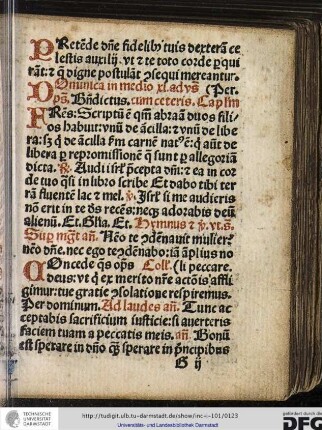 PRetēde dn̄e fidelibꝰ tuis dexterā ce
lestis auxilij. vt ⁊ te toto corde ꝑqui
rāt: ⁊ q̄ digne postulāt ꝯsequi mereantur.
Dominica in medio xl. ad vs̄ (Per.
ps̄. Bn̄dictus. cum ceteris. Caplm
FRēs: Scriptū ē qm̄ abraā duos fili
os habuit: vnū de ācilla: ⁊ vnū de libe
ra: sꝫ q̄ de ācilla ẜm carnē natꝰ ē: q̄ aūt de
libera ꝑ repromissionē q̄ sunt ꝑ allegoriā
dicta. ℟. Audi isrl̄ p̄cepta dn̄i: ⁊ ea in cor
de tuo q̄si in libro scribe Et dabo tibi ter
rā fluentē lac ⁊ mel. ℣. Isrl̄ si me audieris
nō erit in te dꝰ recēs: neqꝫ adorabis deū
alienū. Et. Gl̄ia. Et. Hymnus ⁊ ℣. vt. s.
Sup̄ mgt̄ an̄. Nēo te ꝯdēnauit mulier?
nēo dn̄e. nec ego te ꝯdēnabo: iā āplius no
COncede q̄s op̄s Coll̄. (li peccare.
deus: vt q̄ ex merito nr̄e actōis affli
gimur: tue gratie ꝯsolatiōe respiremus.
Per dominum. Ad laudes an̄. Tunc ac
ceptabis sacrificium iusticie: si auerteris
faciem tuam a peccatis meis. an̄. Bonū
est sperare in dn̄o q̄ꝫ sperare in p̄ncipibus
G ij
TECHNISCHE
UNIVERSITÄT
DARMSTADT
http://tudigit.ulb.tu-darmstadt.de/show/inc-i-101/0123
Universitäts- und Landesbibliothek Darmstadt
gefördert durch die
DFG